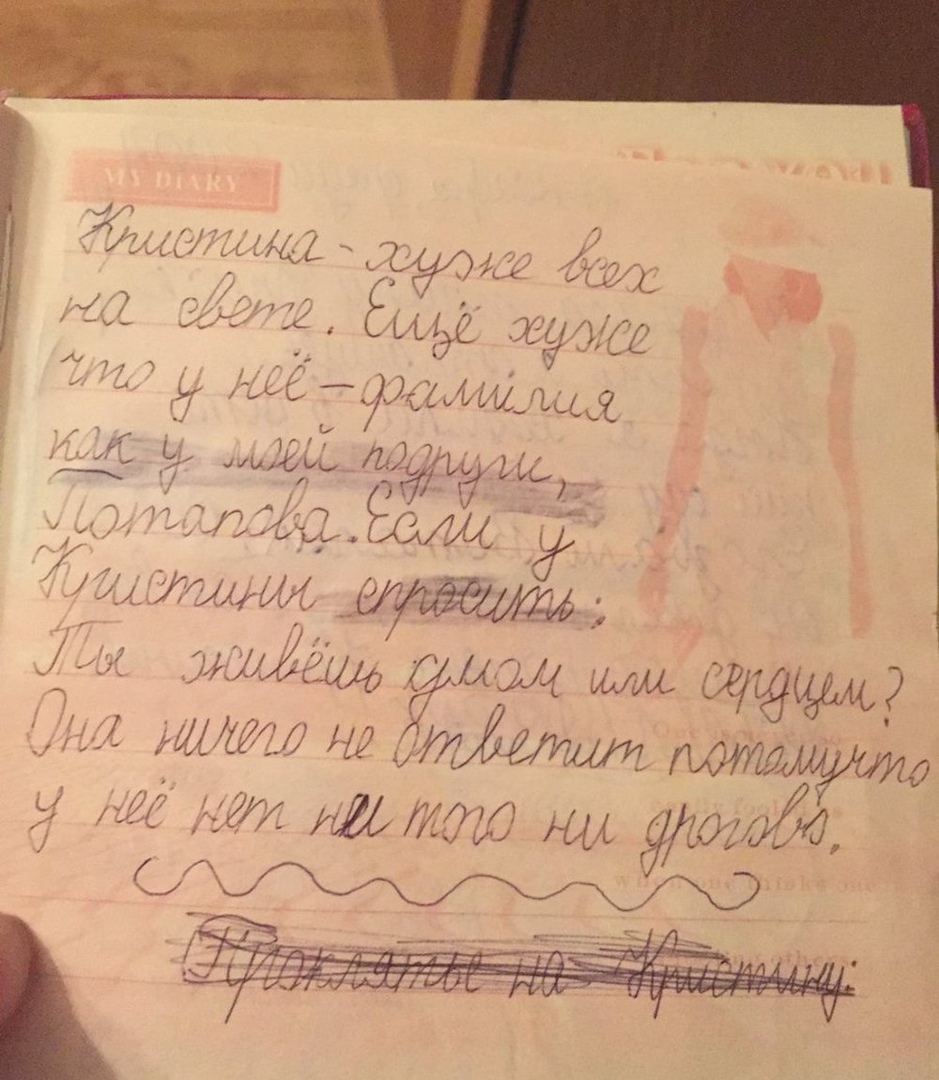 MY DIARY
Кристина - хуже всех
на свете. Ещё хуже
что у неё - фамилия
как у моей подруги,
Потапова. Если у
Кристины спросить:
Ты живёшь умом или сердцем?
Она ничего не ответит потомучто
у неё нет ни того ни дрогова.
Проклятье на Кристину: